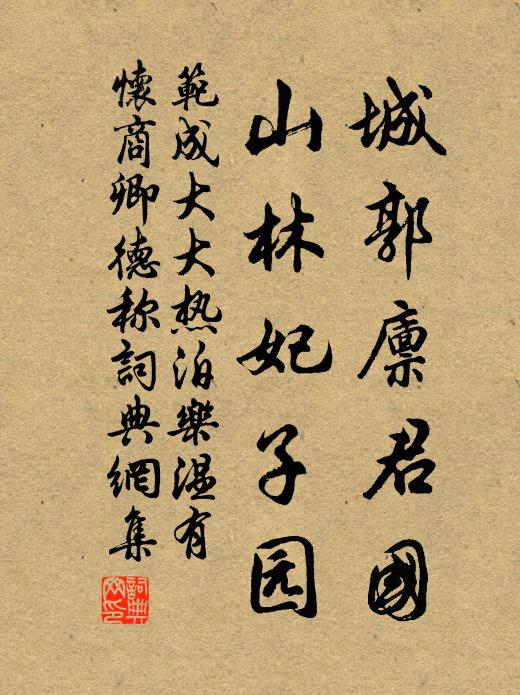 城郭廪君國
山林妃子园
範成大大热泊樂温有
懷商卿德称詞典網集
詞典网印